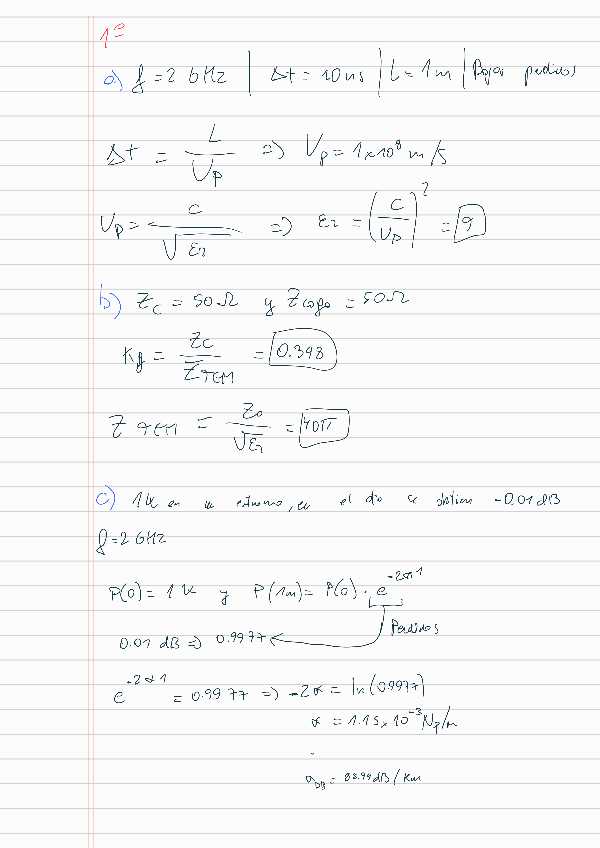 1º
a) f = 2 GHz | Δt = 10 ns | L = 1 m | Bajas perdidas
Δt = L / Vp => Vp = 1x10⁸ m/s
Vp = c / √εr => εr = (c / Vp)² = 9
b) Zc = 50 Ω y Zcarga = 50 Ω
Kg = Zc / ZTEM = 0.398
ZTEM = Z0 / √εr = 40π
c) 1 W en un extremo, en el otro se obtiene -0.01 dB
f = 2 GHz
P(0) = 1 W y P(1m) = P(0) · e^-2α1
Perdidas
0.01 dB => 0.9977
e^-2α1 = 0.9977 => -2α = ln(0.9977)
α = 1.15x10⁻³ Np/m
αdB = 9.99 dB/Km